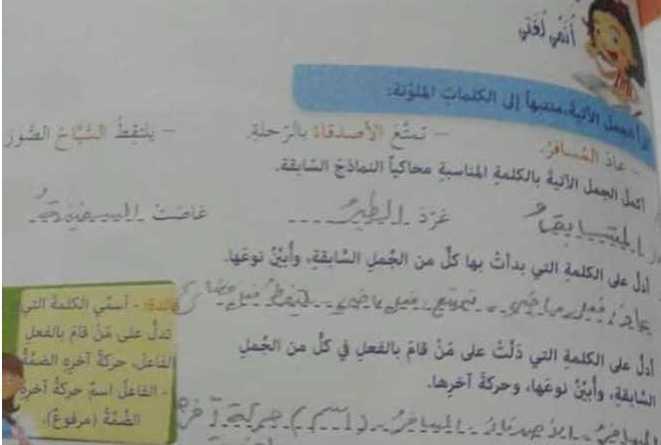 أُنَمّي لُغَتي
أقرأ الجمل الآتية، منتبهاً إلى الكلمات الملوّنة:
- عادَ المُسافرُ. - تمتّعَ الأصدقاءُ بالرّحلةِ. - يلتقِطُ السُّيّاحُ الصُّورَ
أكمل الجمل الآتية بالكلمة المناسبة محاكياً النماذج السّابقة.
غرّدَ الطيرُ غاصَت السفينةُ
أدلّ على الكلمة التي بدأتْ بها كلٌّ من الجُمل السّابقة، وأبيّنُ نوعَها.
عاد: فعل ماضي تمتع فعل ماضي يلتقط فعل
أدلّ على الكلمة التي دلّتْ على مَنْ قامَ بالفعل في كلٍّ من الجُمل
السّابقة، وأبيّنُ نوعَها، وحركةَ آخرِها.
المسافرُ الأصدقاءُ (اسم) حركة آخر
فائدة: - أسمّي الكلمةَ التي
تدلُّ على مَنْ قامَ بالفعل
الفاعل، حركةُ آخرِه الضمّةُ
- الفاعلُ اسمٌ حركةُ آخرِهِ
الضّمّةُ (مرفوعٌ).